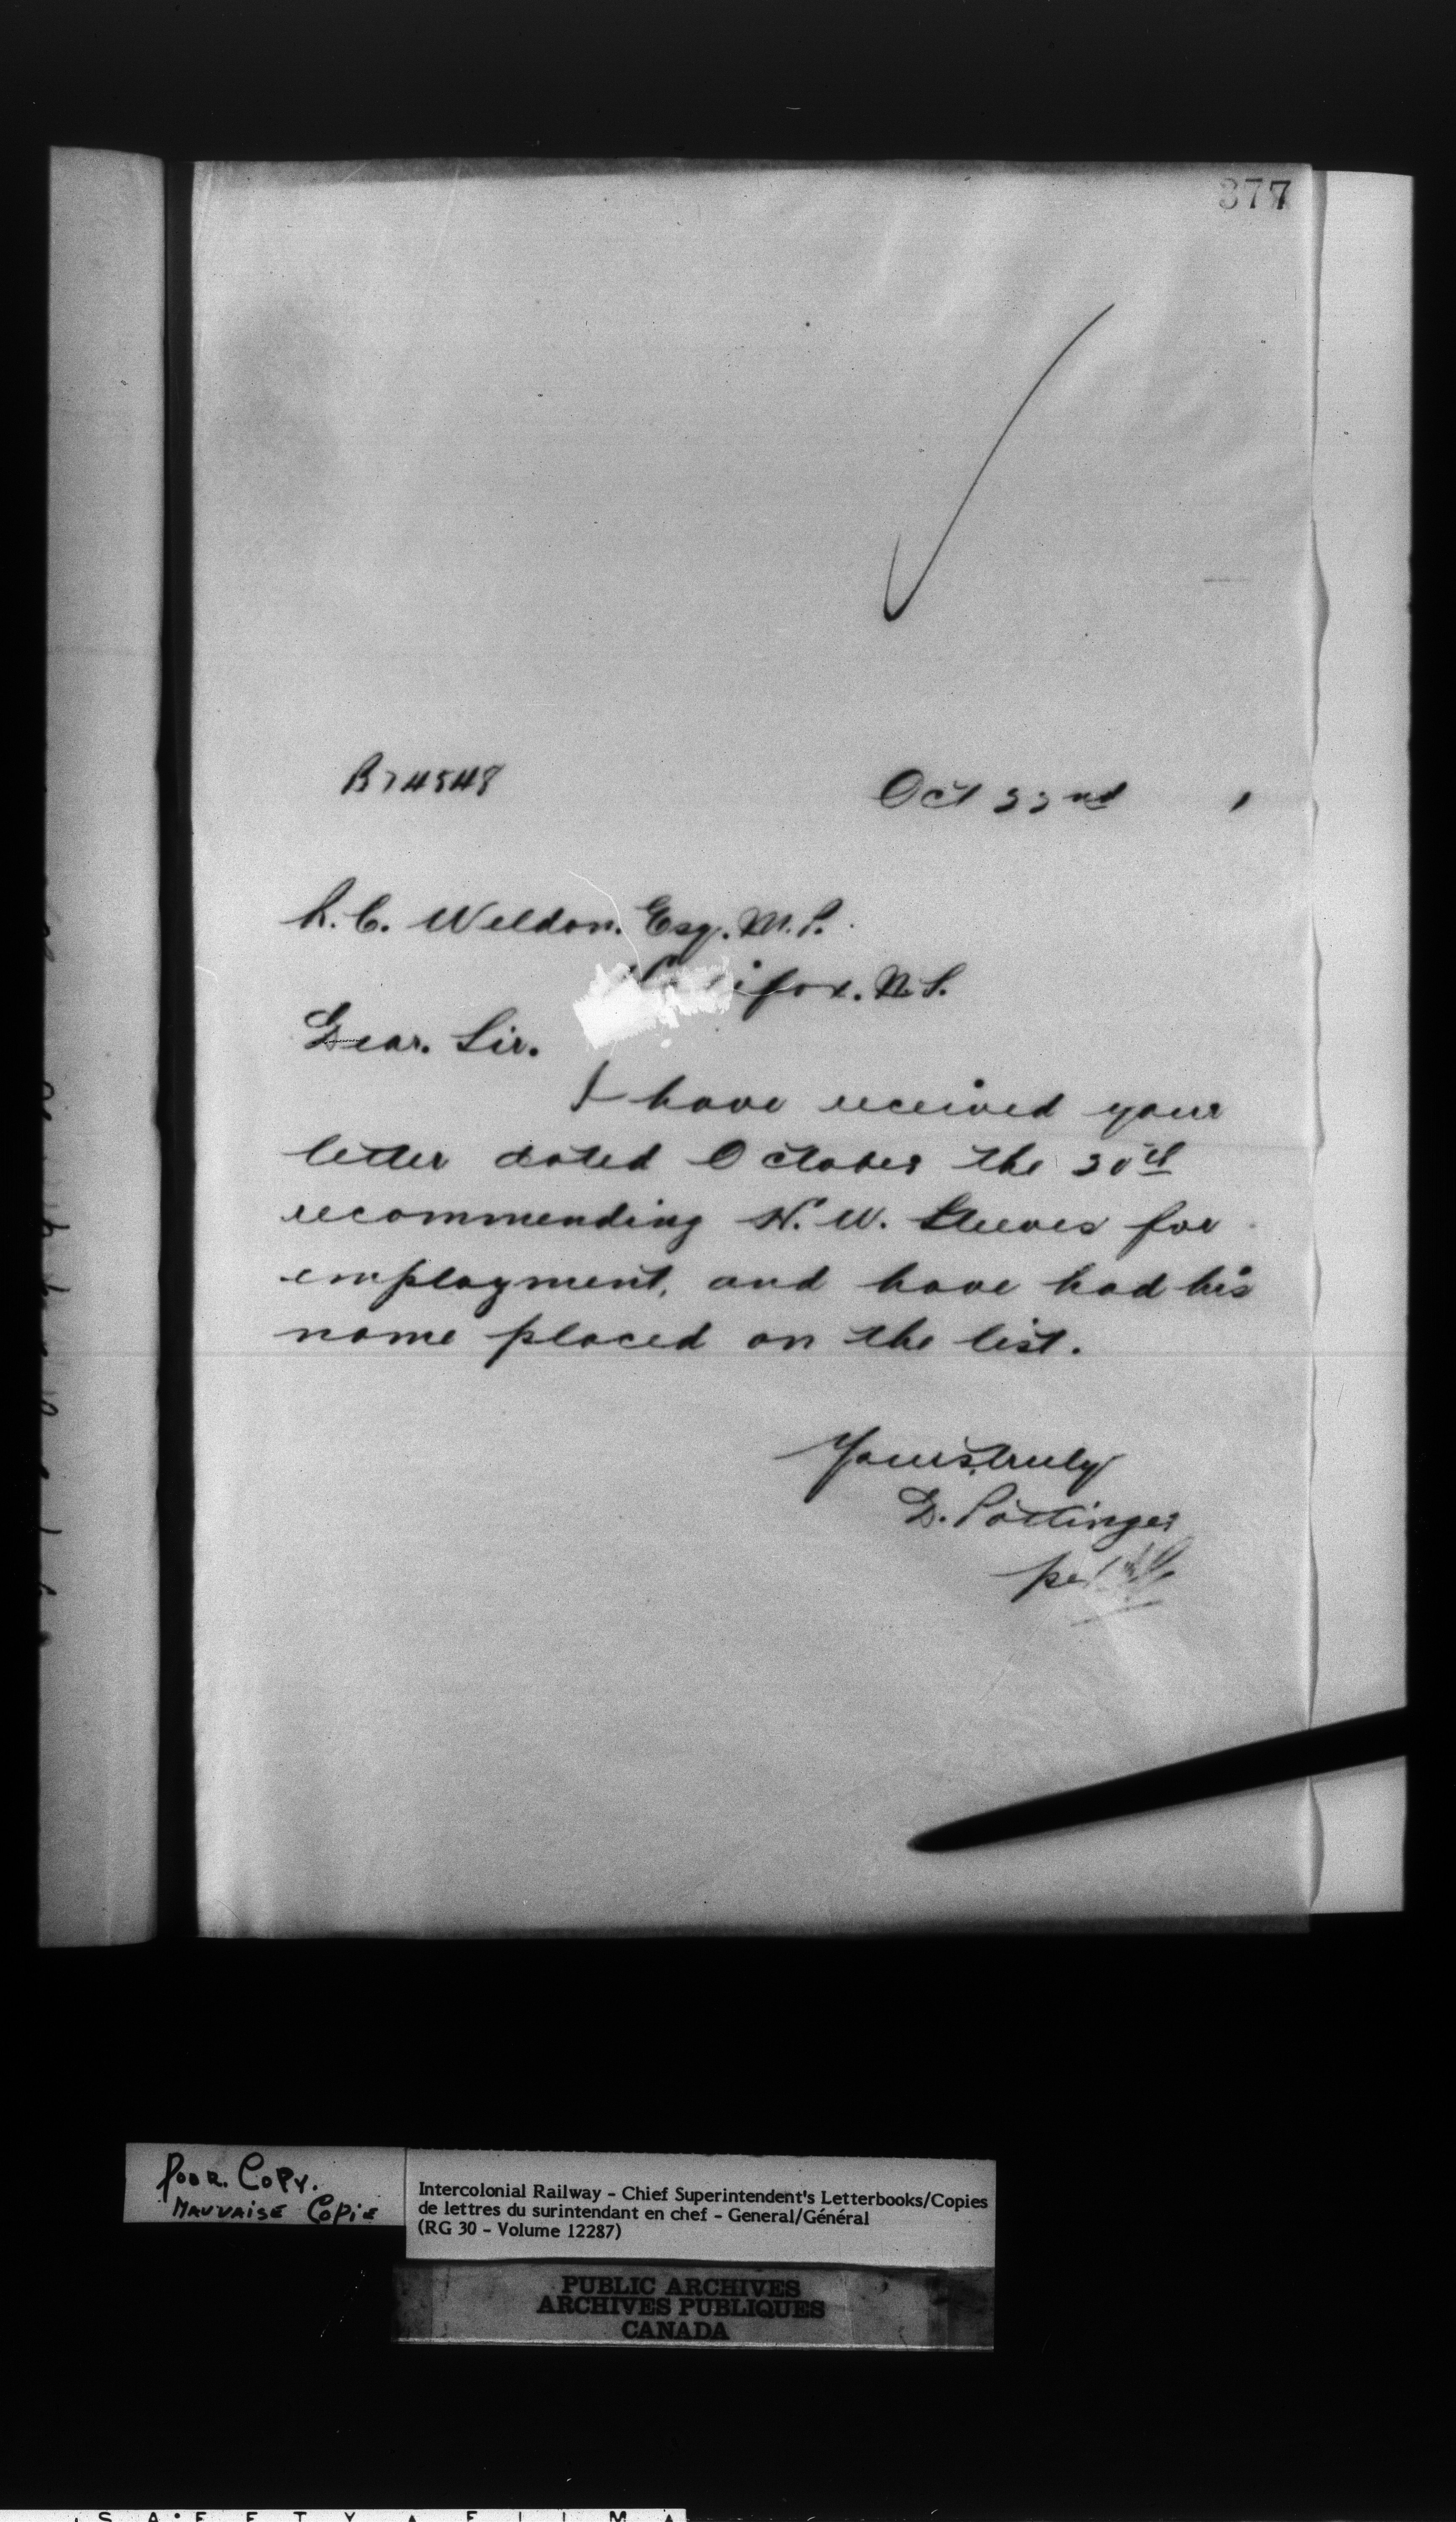 377
B74548
Oct 22nd 1
R. C. Weldon. Esq. M.P.
Halifax. N.S.
Dear. Sir.
I have received your
letter dated October the 20th
recommending N. W. Steeves for
employment, and have had his
name placed on the list.
Yours truly
D. Pottinger
per
Poor. Copy.
Mauvaise Copie
Intercolonial Railway - Chief Superintendent's Letterbooks/Copies
de lettres du surintendant en chef - General/Général
(RG 30 - Volume 12287)
PUBLIC ARCHIVES
ARCHIVES PUBLIQUES
CANADA